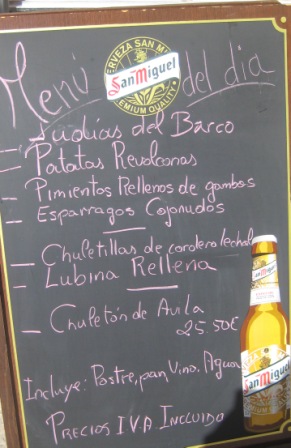 CERVEZA SAN MI
Menú San Miguel del dia
EMIUM QUALITY
Judias del Barco
Patatas Revolconas
Pimientos Rellenos de gambas
Esparragos Cojonudos
Chuletillas de cordero lechal
Lubina Rellena
Chuletón de Avila
25.50€
Incluye: Postre, pan, Vino, Agua
Precios I.V.A Incluido
San Miguel
San Miguel